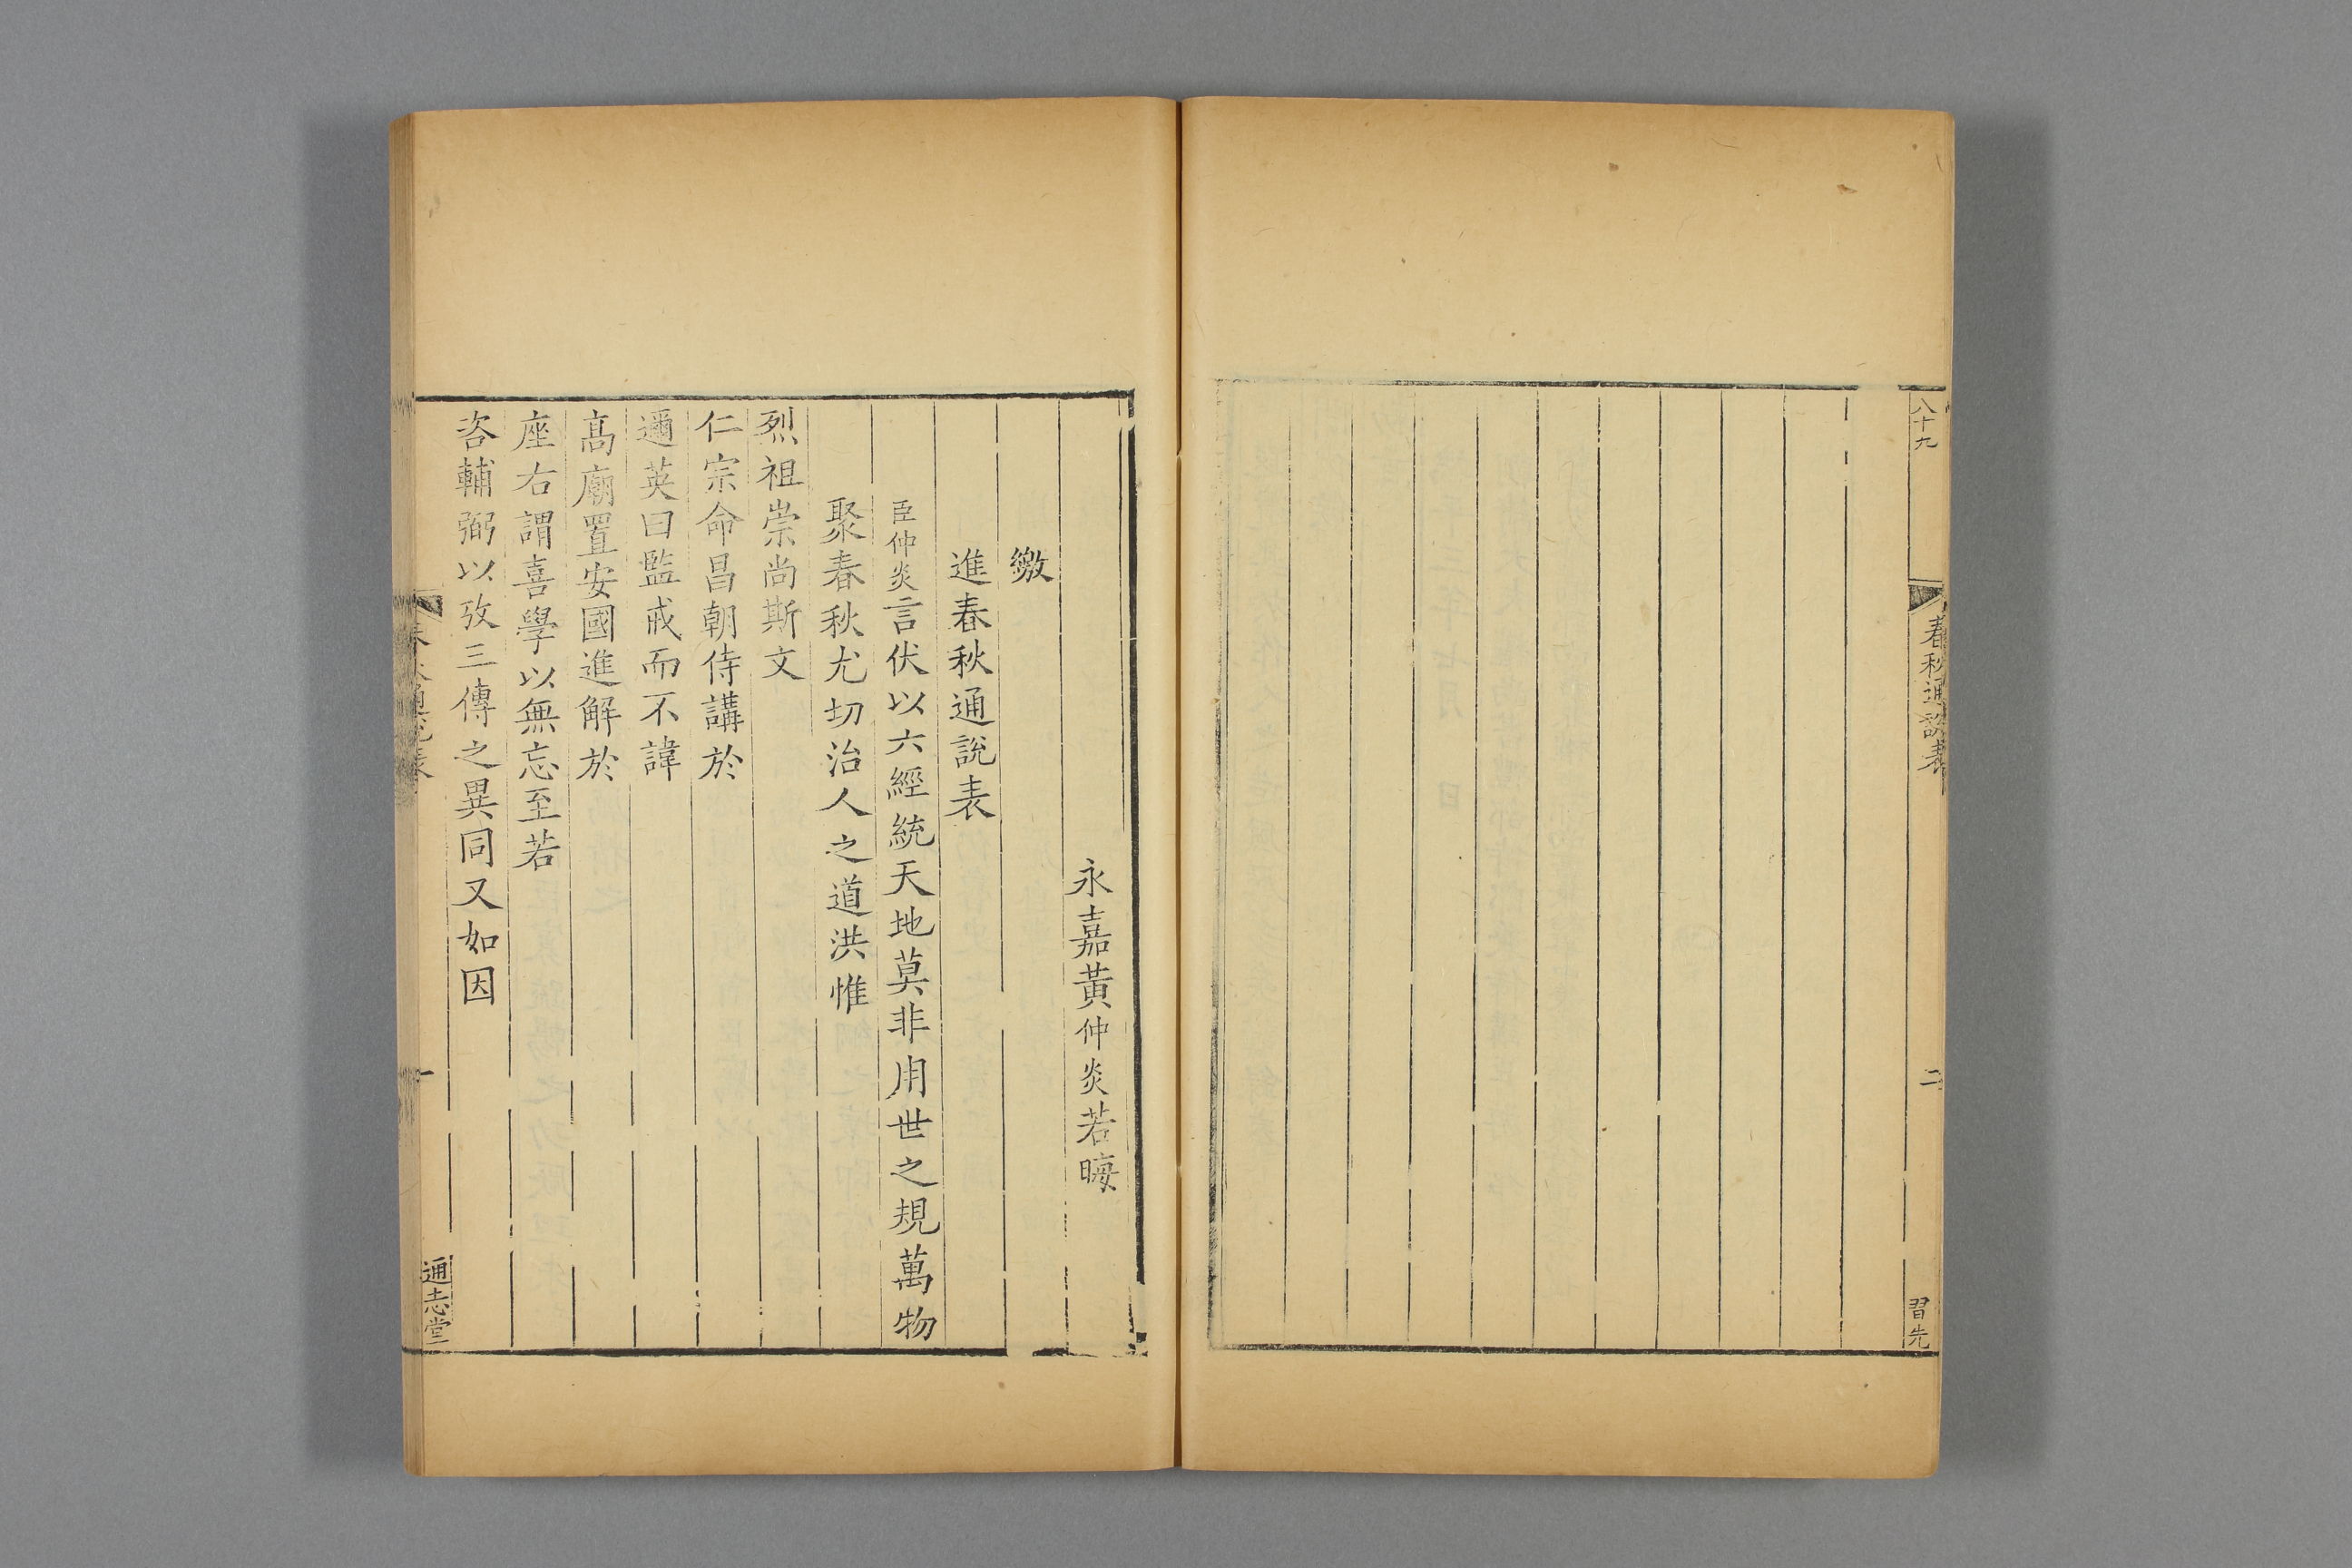 八十九
春秋通說表
二
習先
永嘉黃仲炎若晦
繳
進春秋通說表
臣仲炎言伏以六經統天地莫非用世之規萬物
聚春秋尤切治人之道洪惟
烈祖崇尚斯文
仁宗命昌朝侍講於
邇英曰監戒而不諱
高廟置安國進解於
座右謂喜學以無忘至若
咨輔弼以攷三傳之異同又如因
春秋通說表
一
通志堂